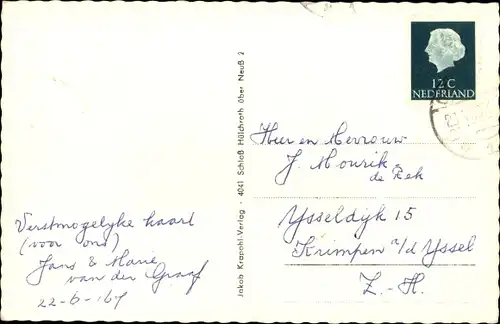 12 C
NEDERLAND
Heer en Mevrouw
J. Mourik
de Rek
Ysseldijk 15
Krimpen a/d Yssel
Z.-H.
Jakob Krapohl-Verlag · 4041 Schloß Hülchrath über Neuß 2
Verstmogelyke kaart
(voor ons)
Jans & Marie
van der Graaf
22-6-'67